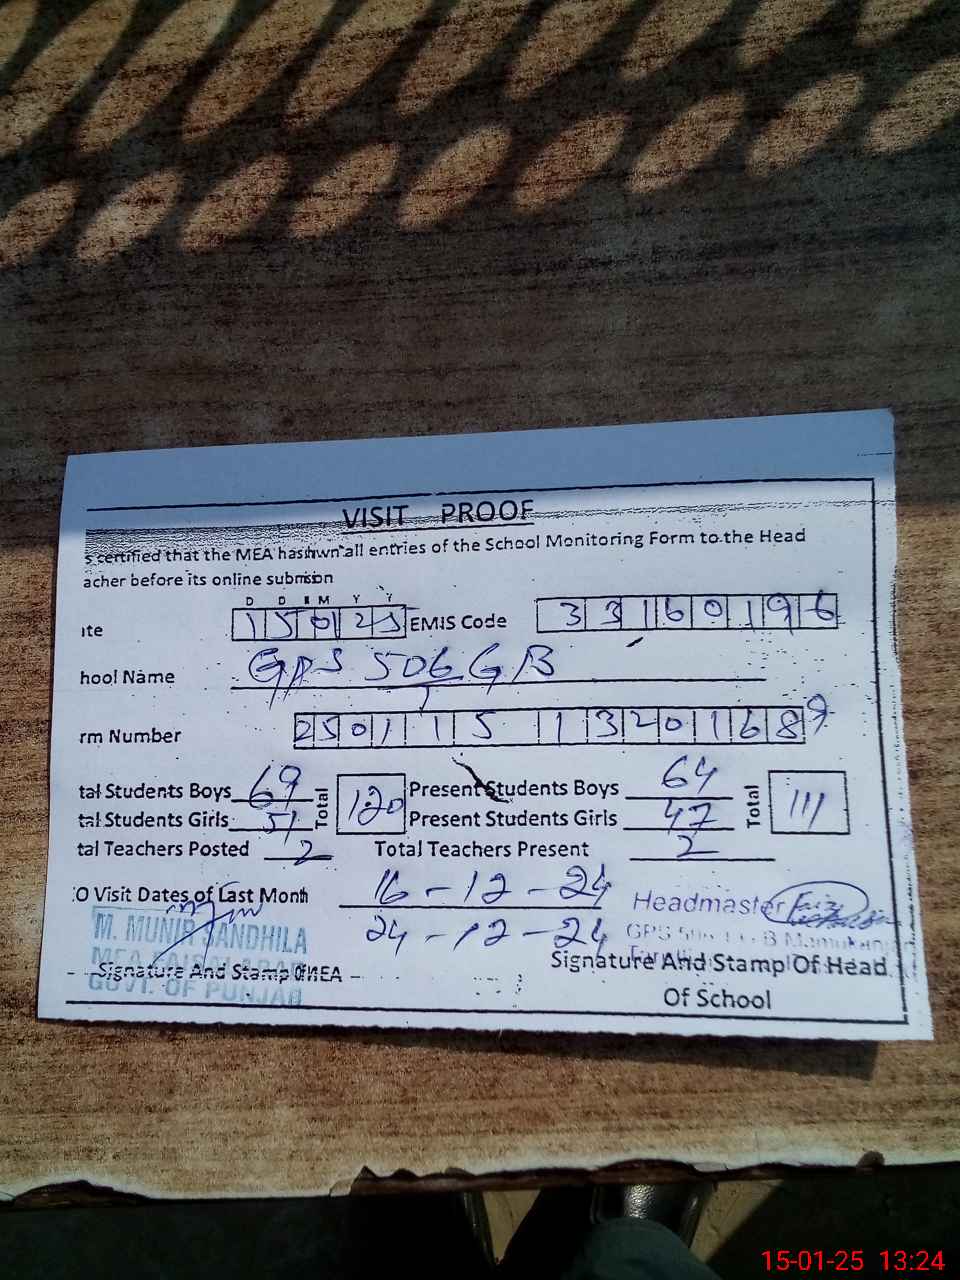 VISIT PROOF
s certified that the MEA has shwn all entries of the School Monitoring Form to the Head
acher before its online submision
D D M M Y Y
ite 150125 EMIS Code 33160196
hool Name GPS 506 GB
rm Number 2501151320168 9
tal Students Boys 69 Total 120 Present Students Boys 64 Total 111
tal Students Girls 51 Present Students Girls 47
tal Teachers Posted 2 Total Teachers Present 2
O Visit Dates of Last Month 16-12-24
24-12-24
M. MUNIR JANDHILA
MEA FAISALABAD
GOVT. OF PUNJAB
Signature And Stamp Of MEA
Headmaster
GPS 506 G B Mamukanjan
Signature And Stamp Of Head
Of School
15-01-25 13:24